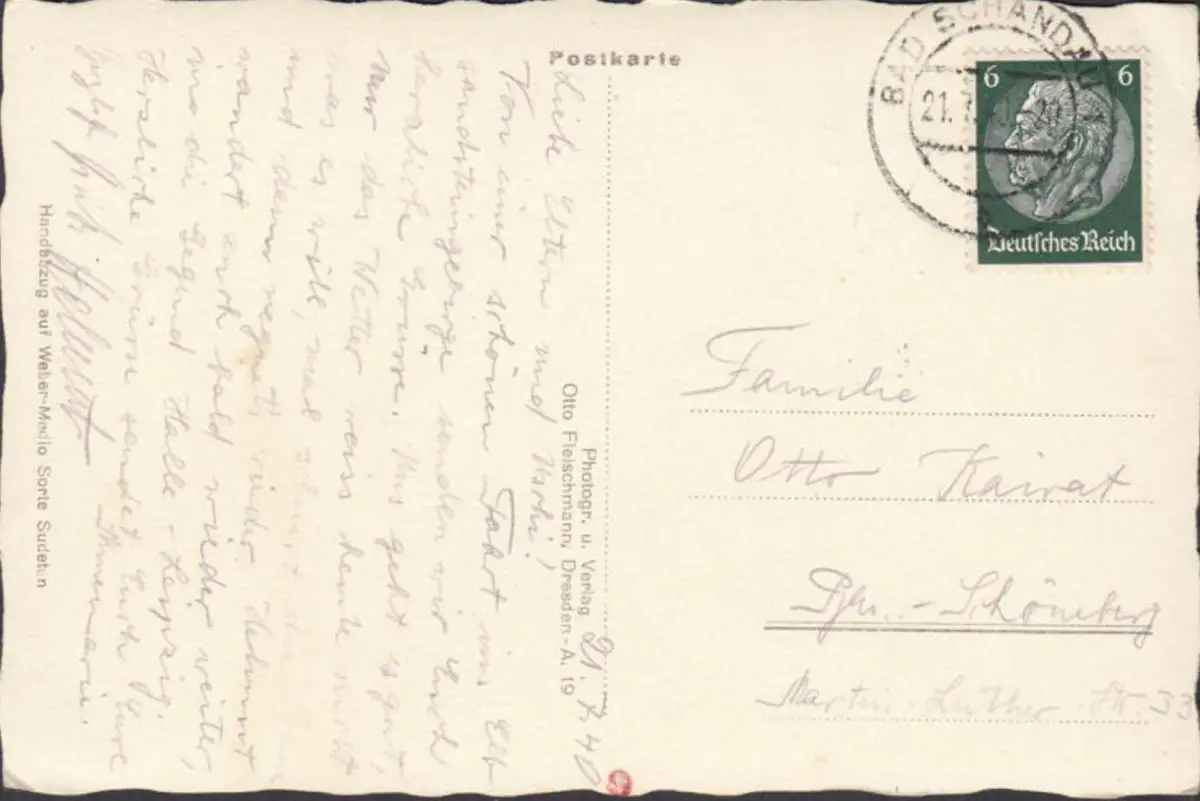 Postkarte
BAD SCHANDAU
21.7.
6 6
Deutsches Reich
21.7.40
Liebe Eltern und Uschi!
Von einer schönen Fahrt ins Elb
sandsteingebirge senden wir Euch
herzliche Grüsse. Uns geht es gut,
nur das Wetter weiss heute nicht
was es will, mal
und dann regnet's wieder. Helmut
wandert auch bald wieder weiter,
in die Gegend Halle-Leipzig.
Herzliche Grüsse sendet Euch Eure
Annemarie.
Helmut
Photogr. u. Verlag
Otto Fleischmann, Dresden-A. 19
Handabzug auf Weber-Medio Sorte Sudeten
Familie
Otto Kairat
Bln.-Schöneberg
Martin-Luther-Str. 33